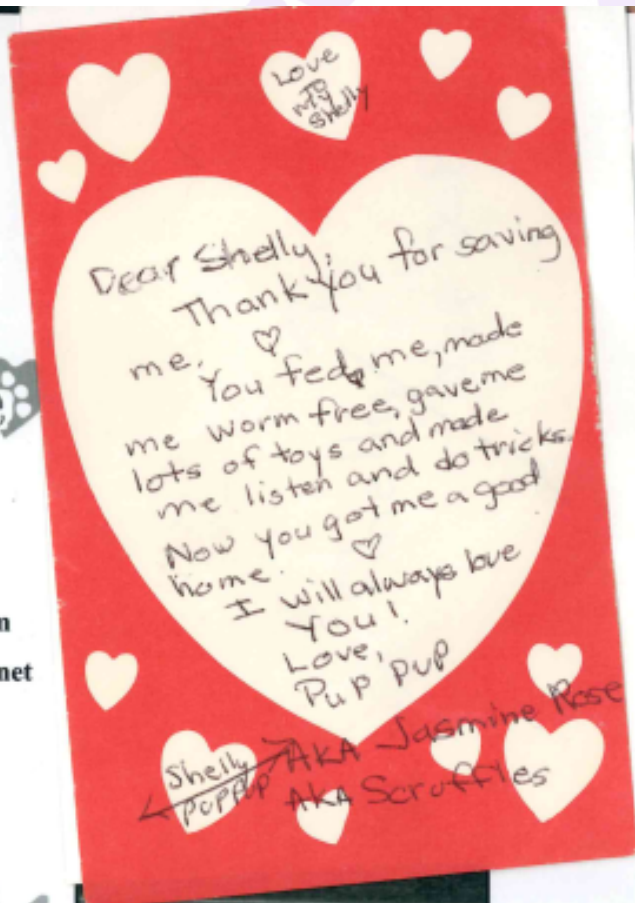 Love
To
My
Shelly
Dear Shelly,
Thank you for saving
me. ♡
You fed me, made
me worm free, gave me
lots of toys and made
me listen and do tricks.
Now you got me a good
home. ♡
I will always love
You!
Love,
Pup Pup
AKA Jasmine Rose
AKA Scruffles
Shelly
PupPup
n
net